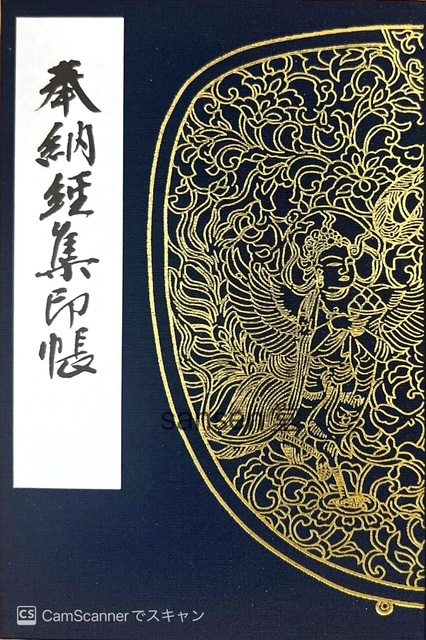 奉納経集印帳
CS CamScannerでスキャン